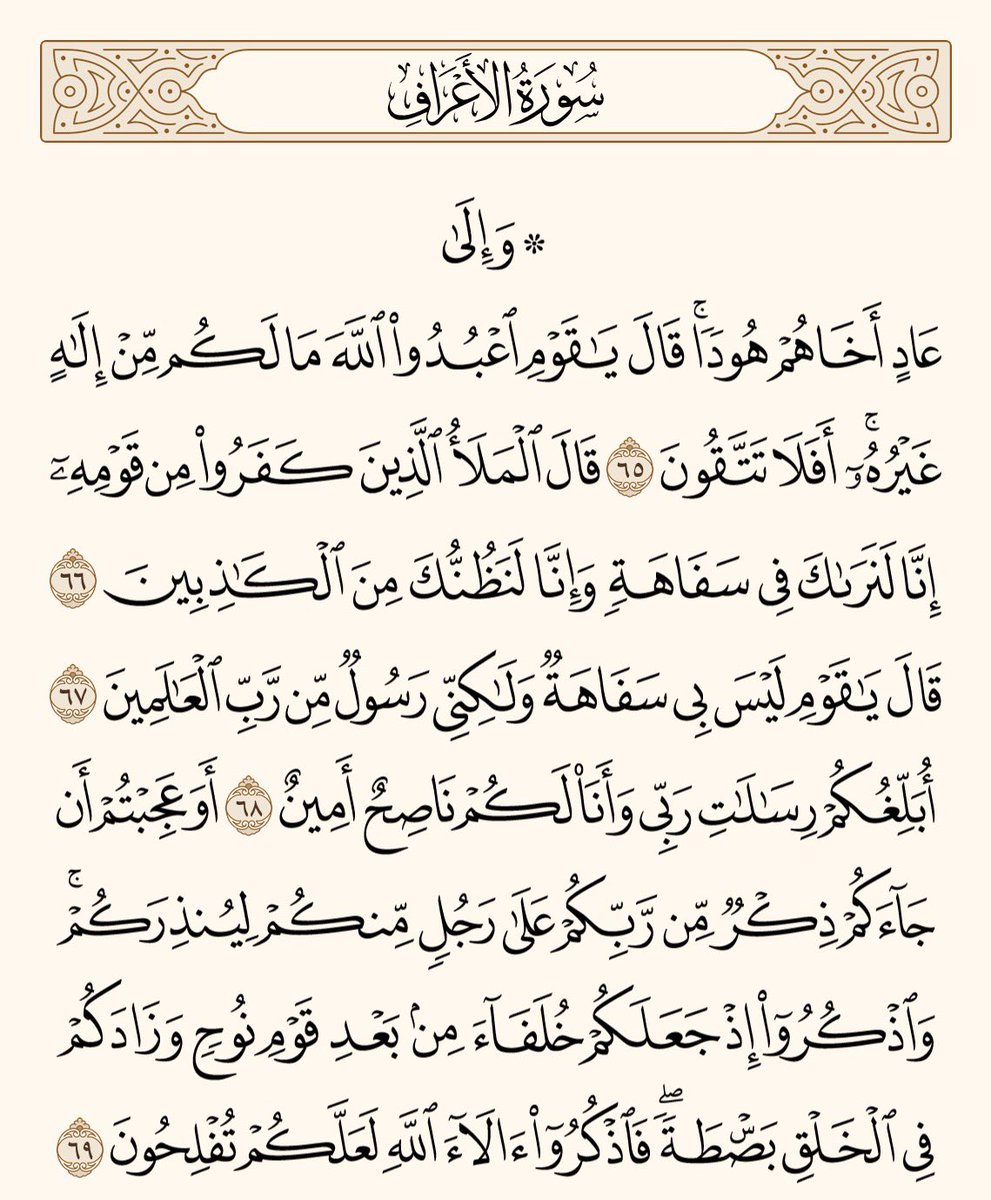 سُورَةُ الأَعْرَافِ
۞ وَإِلَىٰ
عَادٍ أَخَاهُمْ هُودٗاۚ قَالَ يَٰقَوْمِ ٱعْبُدُواْ ٱللَّهَ مَا لَكُم مِّنْ إِلَٰهٍ
غَيْرُهُۥٓۚ أَفَلَا تَتَّقُونَ ٦٥ قَالَ ٱلْمَلَأُ ٱلَّذِينَ كَفَرُواْ مِن قَوْمِهِۦٓ
إِنَّا لَنَرَىٰكَ فِي سَفَاهَةٖ وَإِنَّا لَنَظُنُّكَ مِنَ ٱلْكَٰذِبِينَ ٦٦
قَالَ يَٰقَوْمِ لَيْسَ بِي سَفَاهَةٞ وَلَٰكِنِّي رَسُولٞ مِّن رَّبِّ ٱلْعَٰلَمِينَ ٦٧
أُبَلِّغُكُمْ رِسَٰلَٰتِ رَبِّي وَأَنَا۠ لَكُمْ نَاصِحٌ أَمِينٌ ٦٨ أَوَعَجِبْتُمْ أَن
جَآءَكُمْ ذِكْرٞ مِّن رَّبِّكُمْ عَلَىٰ رَجُلٖ مِّنكُمْ لِيُنذِرَكُمْۚ
وَٱذْكُرُوٓاْ إِذْ جَعَلَكُمْ خُلَفَآءَ مِنۢ بَعْدِ قَوْمِ نُوحٖ وَزَادَكُمْ
فِي ٱلْخَلْقِ بَصْۜطَةٗۖ فَٱذْكُرُوٓاْ ءَالَآءَ ٱللَّهِ لَعَلَّكُمْ تُفْلِحُونَ ٦٩